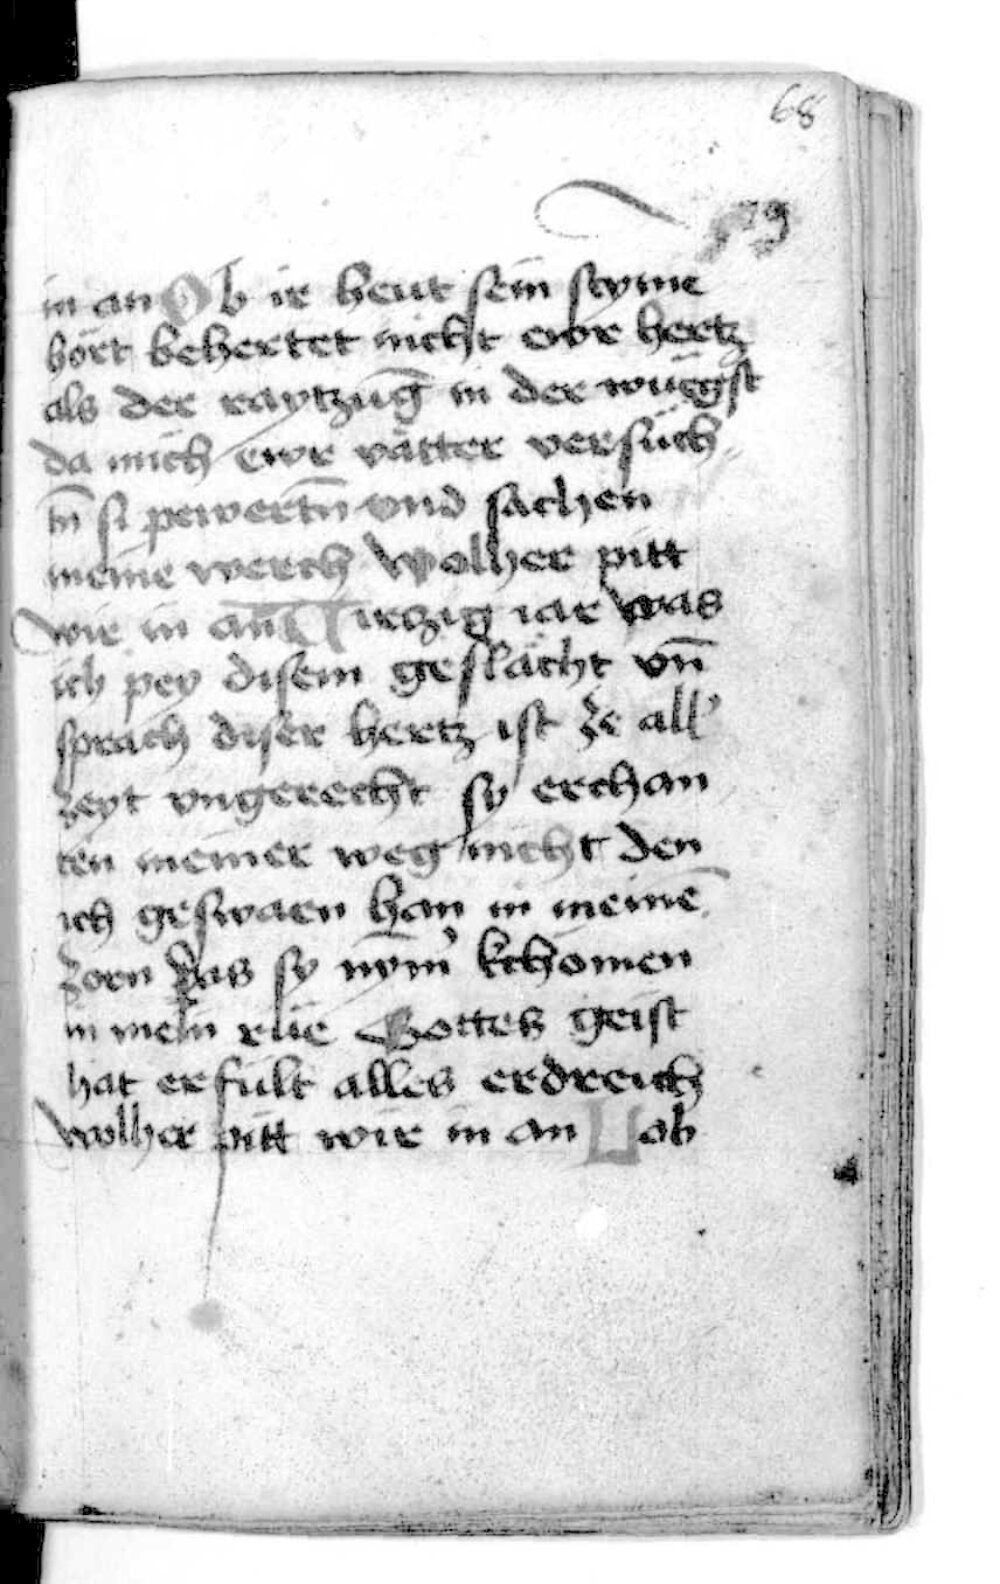 68
in an Ob ir heut sein styme
hört behertet nicht ewr hertz
als der raytzug̅ in der wüegst
da mich ewr vätter versuch
tn̅ si pewertn̅ vnd sachen
meine werch wolher pitt
wir in an̅ Uirczig iar was
ich pey disem geslächt vn̅
sprach diser hertz ist ze all'
zeyt vngerecht sy erchan
ten meiner weg nicht den
ich geswaren han in meine̅
zorn das sy nym̅' kchömen
in mein rüe Gottes geist
hat erfült alles erdreich
wolher pitt wir in an Lob